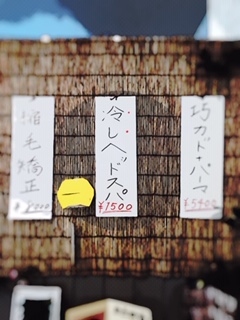 縮毛矯正
冷しヘッドスパ
¥1500
巧カット・パーマ
¥5400